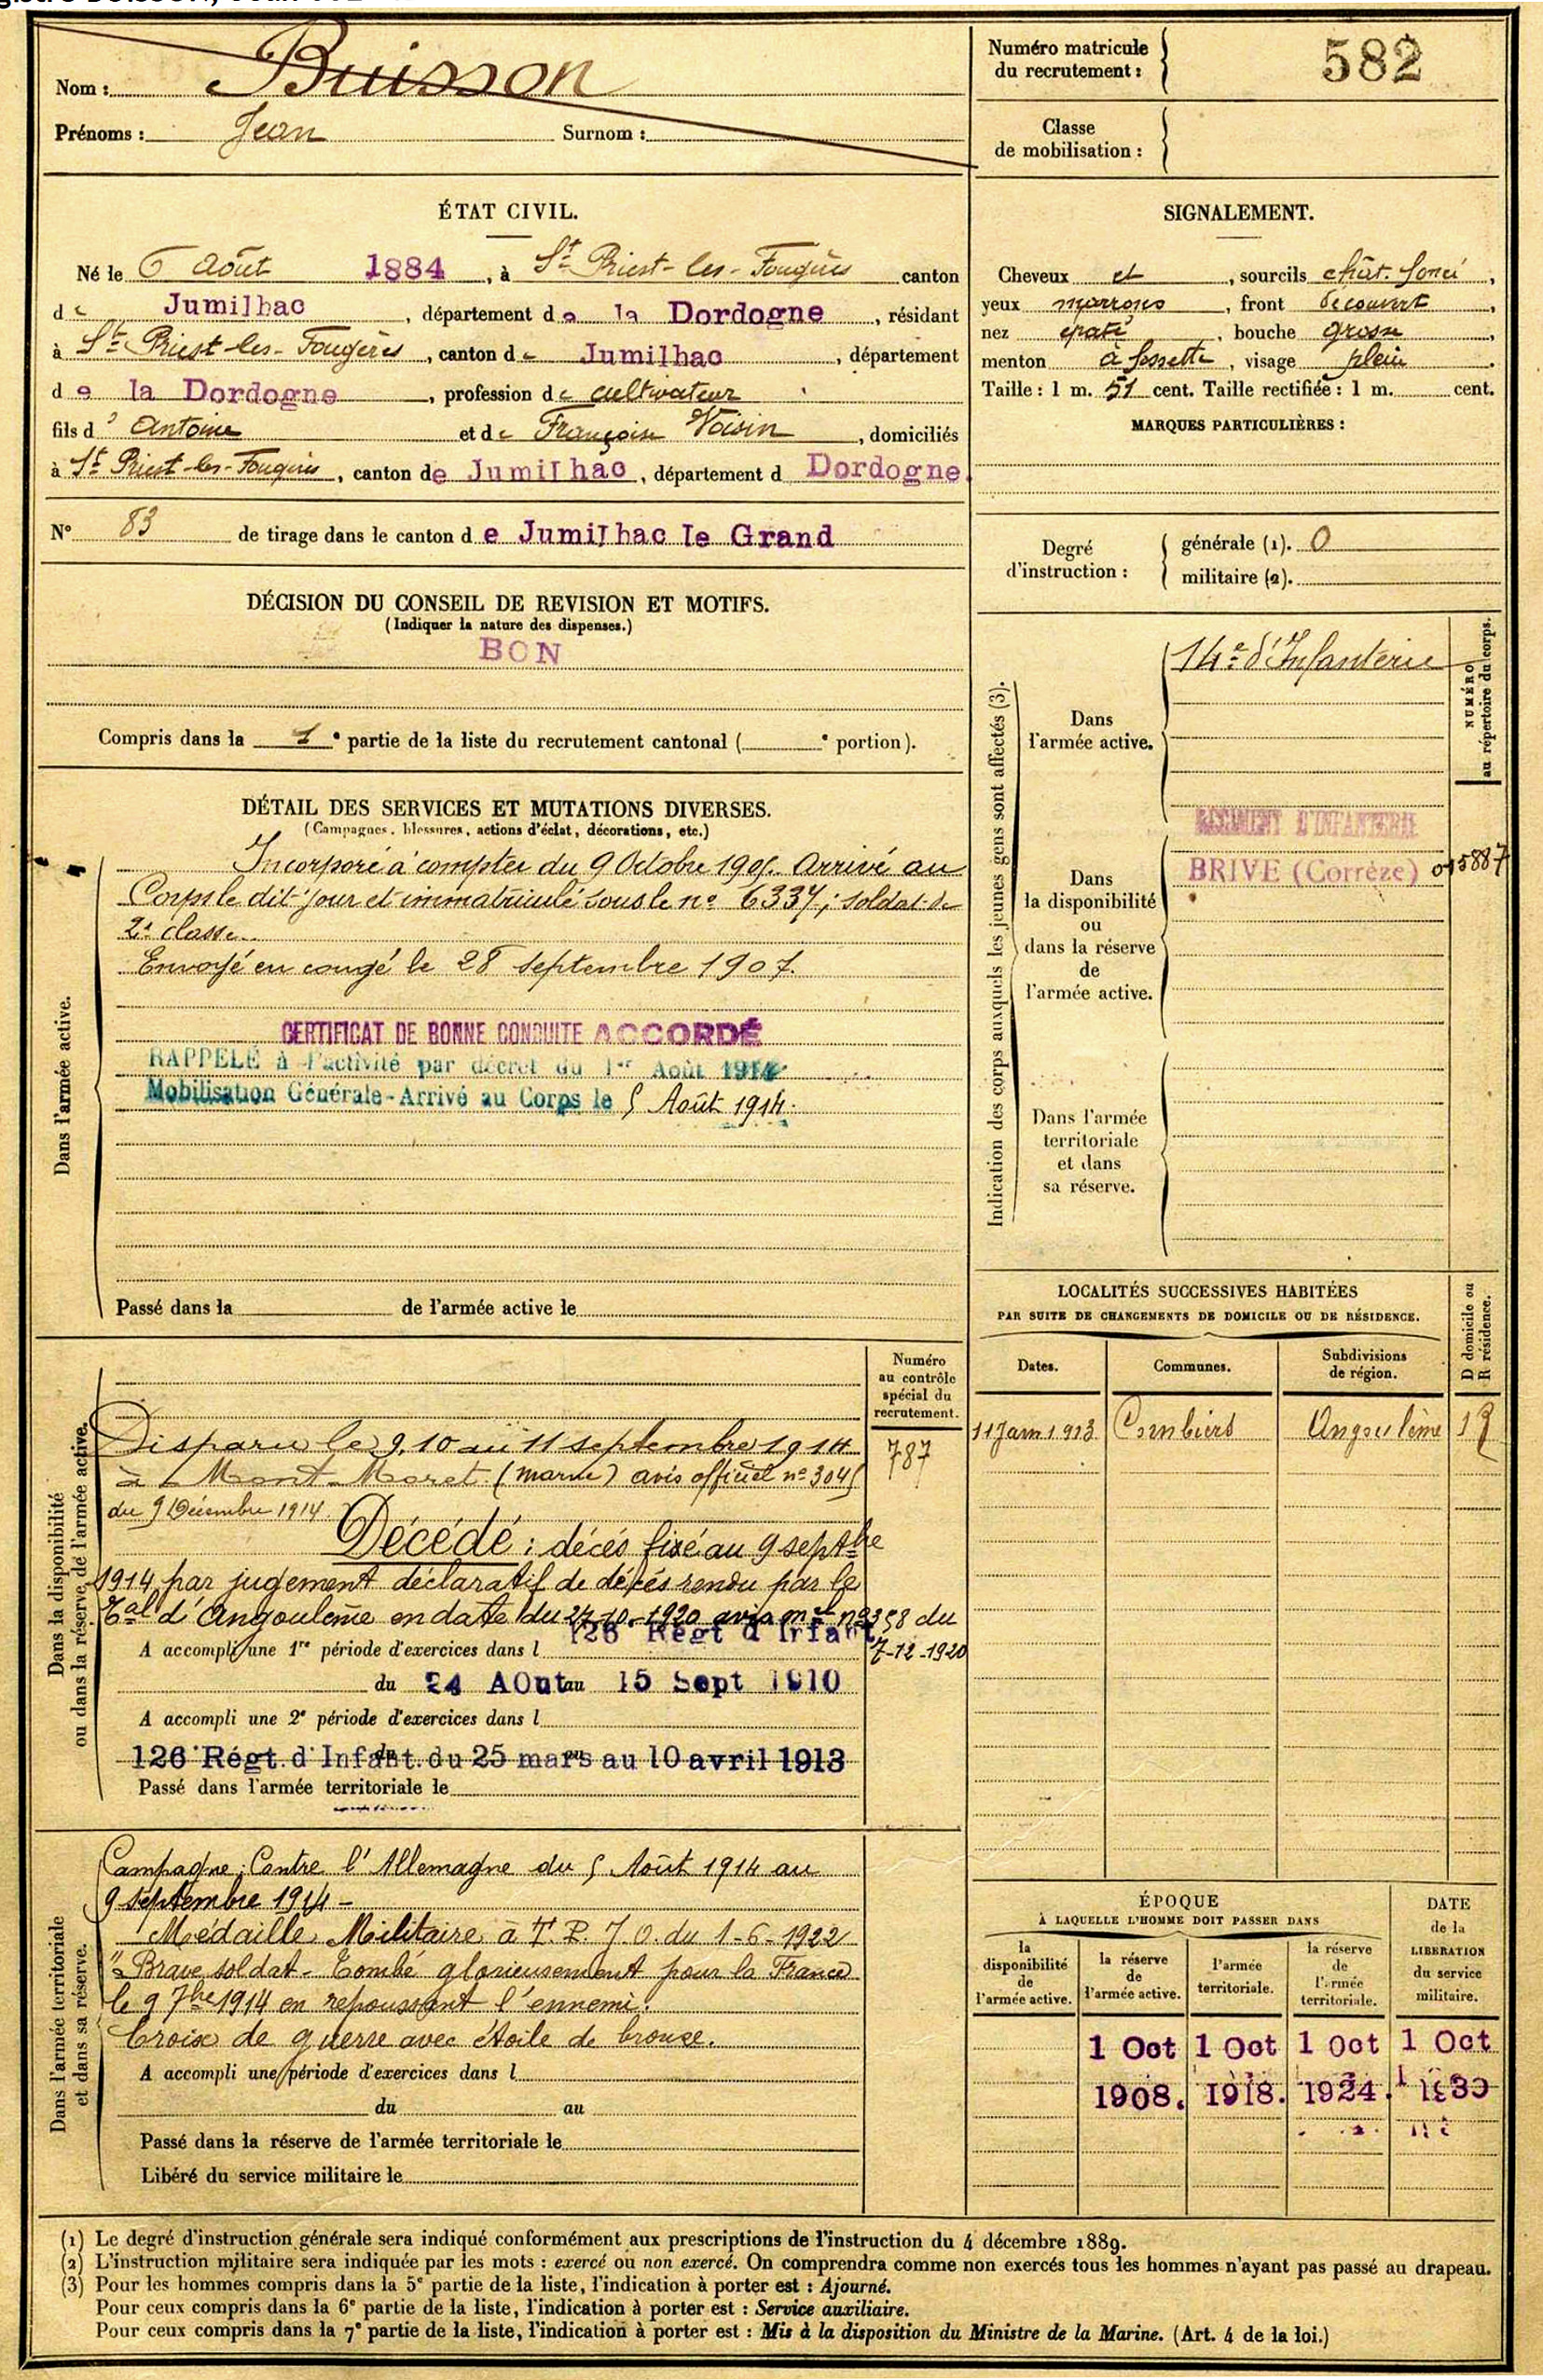 Nom : Buisson
Prénoms : Jean Surnom :
Numéro matricule
du recrutement :
582
Classe
de mobilisation :
ÉTAT CIVIL.
Né le 6 Août 1884, à St Priest-les-Fougères canton
de Jumilhac, département de la Dordogne, résidant
à St Priest-les-Fougères, canton de Jumilhac, département
de la Dordogne, profession de cultivateur
fils d'Antoine et de Françoise Voisin, domiciliés
à St Priest-les-Fougères, canton de Jumilhac, département d Dordogne
N° 83 de tirage dans le canton de Jumilhac le Grand
SIGNALEMENT.
Cheveux et, sourcils chât. foncé,
yeux marrons, front découvert,
nez épaté, bouche grosse,
menton à fossette, visage plein.
Taille : 1 m. 51 cent. Taille rectifiée : 1 m. cent.
MARQUES PARTICULIÈRES :
Degré
d'instruction :
générale (1). 0
militaire (2).
DÉCISION DU CONSEIL DE REVISION ET MOTIFS.
(Indiquer la nature des dispenses.)
BON
Compris dans la 1e partie de la liste du recrutement cantonal ( e portion).
DÉTAIL DES SERVICES ET MUTATIONS DIVERSES.
(Campagnes, blessures, actions d'éclat, décorations, etc.)
Dans l'armée active.
Incorporé à compter du 9 Octobre 1905. Arrivé au
Corps le dit jour et immatriculé sous le n° 6337; soldat de
2e classe.
Envoyé en congé le 28 septembre 1907.
CERTIFICAT DE BONNE CONDUITE ACCORDÉ
RAPPELÉ à l'activité par décret du 1er Août 1914
Mobilisation Générale-Arrivé au Corps le 5 Août 1914.
Passé dans la de l'armée active le
Indication des corps auxquels les jeunes gens sont affectés (3).
NUMÉRO
au répertoire du corps.
Dans
l'armée active.
14e d'Infanterie
Dans
la disponibilité
ou
dans la réserve
de
l'armée active.
REGIMENT D'INFANTERIE
BRIVE (Corrèze) 015887
Dans l'armée
territoriale
et dans
sa réserve.
LOCALITÉS SUCCESSIVES HABITÉES
PAR SUITE DE CHANGEMENTS DE DOMICILE OU DE RÉSIDENCE.
Dates.
Communes.
Subdivisions
de région.
D domicile ou
R résidence.
11 Janv. 1913 Combiers Angoulême
Dans la disponibilité
ou dans la réserve de l'armée active.
Numéro
au contrôle
spécial du
recrutement.
787
Disparu le 9, 10 au 11 septembre 1914
à Mont-Moret (marne) avis officiel n° 3045
du 9 Décembre 1914.
Décédé : décès fixé au 9 septbre
1914 par jugement déclaratif de décès rendu par le
Tal d'Angoulême en date du 27-10-1920 avis mel n° 358 du
7-12-1920
A accompli une 1re période d'exercices dans l 126 Régt d'Infant.
du 24 AOut au 15 Sept 1910
A accompli une 2e période d'exercices dans l
126 Régt. d'Infant. du 25 mars au 10 avril 1913
Passé dans l'armée territoriale le
Dans l'armée territoriale
et dans sa réserve.
Campagne : Contre l'Allemagne du 5 Août 1914 au
9 septembre 1914 -
Médaille Militaire à T.P. J.O. du 1-6-1922
"Brave soldat - Tombé glorieusement pour la France
le 9 7bre 1914 en repoussant l'ennemi.
Croix de guerre avec étoile de bronze.
A accompli une période d'exercices dans l
du au
Passé dans la réserve de l'armée territoriale le
Libéré du service militaire le
ÉPOQUE
À LAQUELLE L'HOMME DOIT PASSER DANS
la
disponibilité
de
l'armée active.
la réserve
de
l'armée active.
l'armée
territoriale.
la réserve
de
l'armée
territoriale.
DATE
de la
LIBÉRATION
du service
militaire.
1 Oct 1 Oct 1 Oct 1 Oct
1908. 1918. 1924. 1930
(1) Le degré d'instruction générale sera indiqué conformément aux prescriptions de l'instruction du 4 décembre 1889.
(2) L'instruction militaire sera indiquée par les mots : exercé ou non exercé. On comprendra comme non exercés tous les hommes n'ayant pas passé au drapeau.
(3) Pour les hommes compris dans la 5e partie de la liste, l'indication à porter est : Ajourné.
Pour ceux compris dans la 6e partie de la liste, l'indication à porter est : Service auxiliaire.
Pour ceux compris dans la 7e partie de la liste, l'indication à porter est : Mis à la disposition du Ministre de la Marine. (Art. 4 de la loi.)